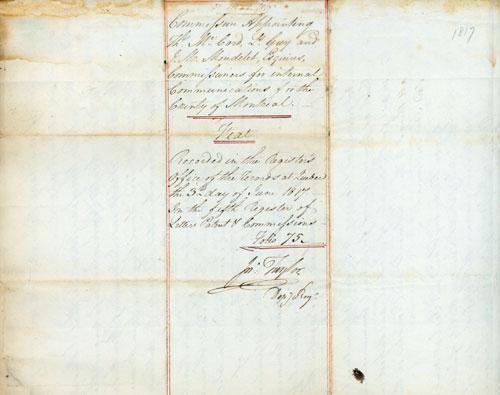 Commission Appointing
Ths. McCord, Ls. Guy and
J. M. Mondelet, Esquires,
Commissioners for internal
Communications for the
County of Montreal.
Fiat
Recorded in the Register's
Office of the Records at Quebec
the 5th day of June 1817
In the fifth Register of
Letters Patent & Commissions
Folio 75.
Jn. Taylor
Depy. Reg.
1817